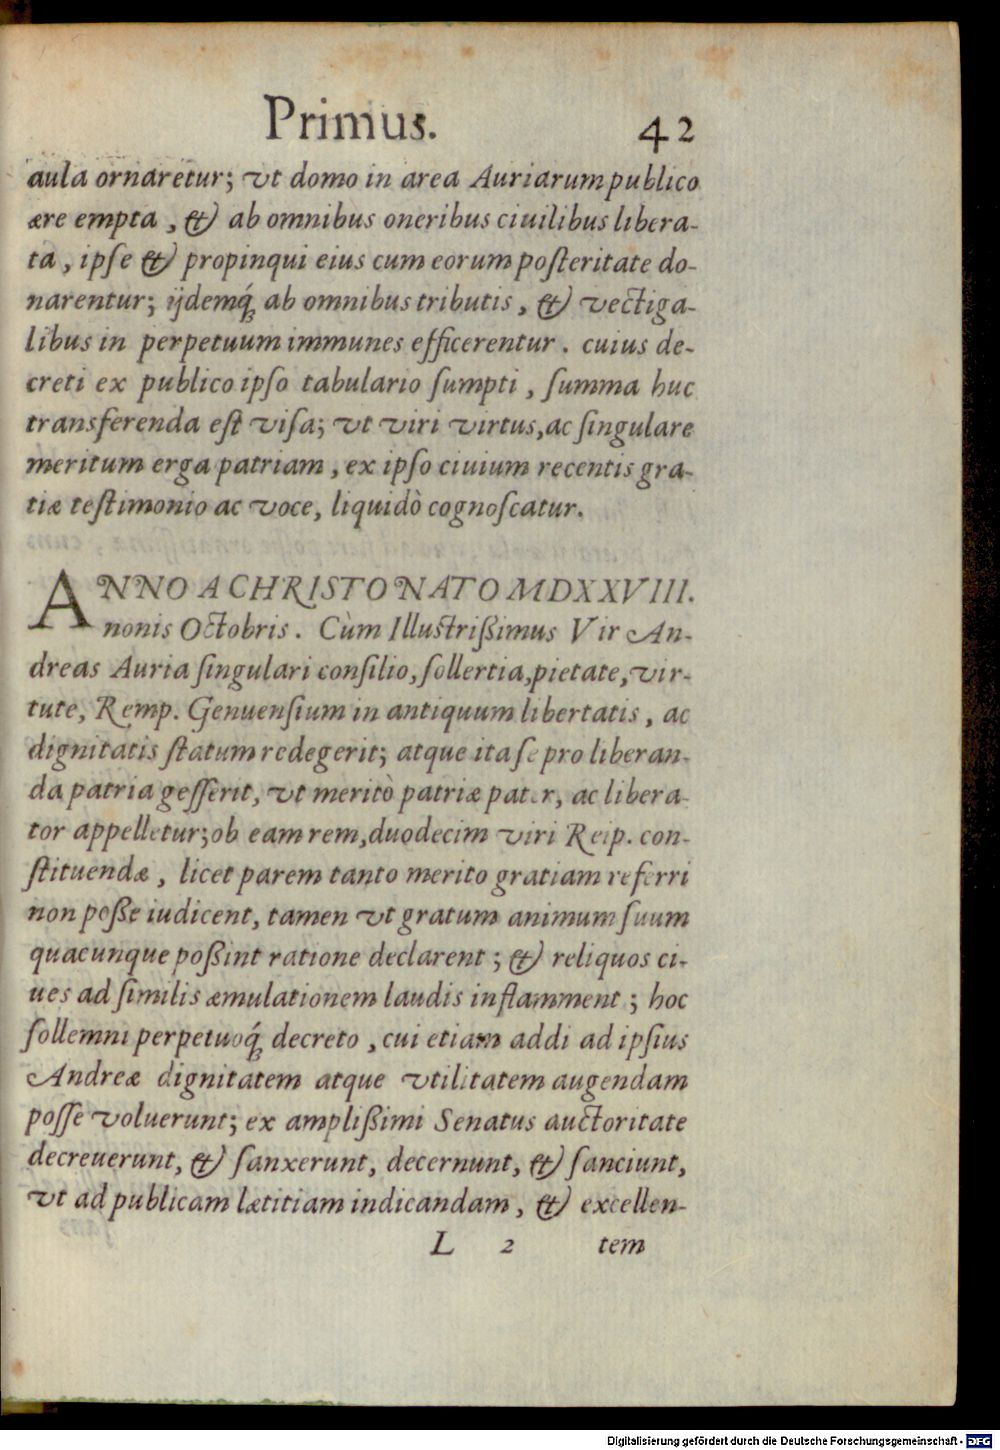 Primus. 42
aula ornaretur; vt domo in area Auriarum publico
ære empta, & ab omnibus oneribus ciuilibus libera-
ta, ipſe & propinqui eius cum eorum poſteritate do-
narentur; ijdemq́; ab omnibus tributis, & vectiga-
libus in perpetuum immunes efficerentur. cuius de-
creti ex publico ipſo tabulario ſumpti, ſumma huc
transferenda eſt viſa; vt viri virtus, ac ſingulare
meritum erga patriam, ex ipſo ciuium recentis gra-
tiæ teſtimonio ac voce, liquidò cognoſcatur.
ANNO A CHRISTO NATO MDXXVIII.
nonis Octobris. Cùm Illuſtrißimus Vir An-
dreas Auria ſingulari conſilio, ſollertia, pietate, vir-
tute, Remp. Genuenſium in antiquum libertatis, ac
dignitatis ſtatum redegerit; atque ita ſe pro liberan-
da patria geſſerit, vt meritò patriæ pater, ac libera-
tor appelletur; ob eam rem, duodecim viri Reip. con-
ſtituendæ, licet parem tanto merito gratiam referri
non poße iudicent, tamen vt gratum animum ſuum
quacunque poßint ratione declarent; & reliquos ci-
ues ad ſimilis æmulationem laudis inflamment; hoc
ſollemni perpetuoq́; decreto, cui etiam addi ad ipſius
Andreæ dignitatem atque vtilitatem augendam
poſſe voluerunt; ex amplißimi Senatus auctoritate
decreuerunt, & ſanxerunt, decernunt, & ſanciunt,
vt ad publicam lætitiam indicandam, & excellen-
L 2 tem
Digitalisierung gefördert durch die Deutsche Forschungsgemeinschaft - DFG